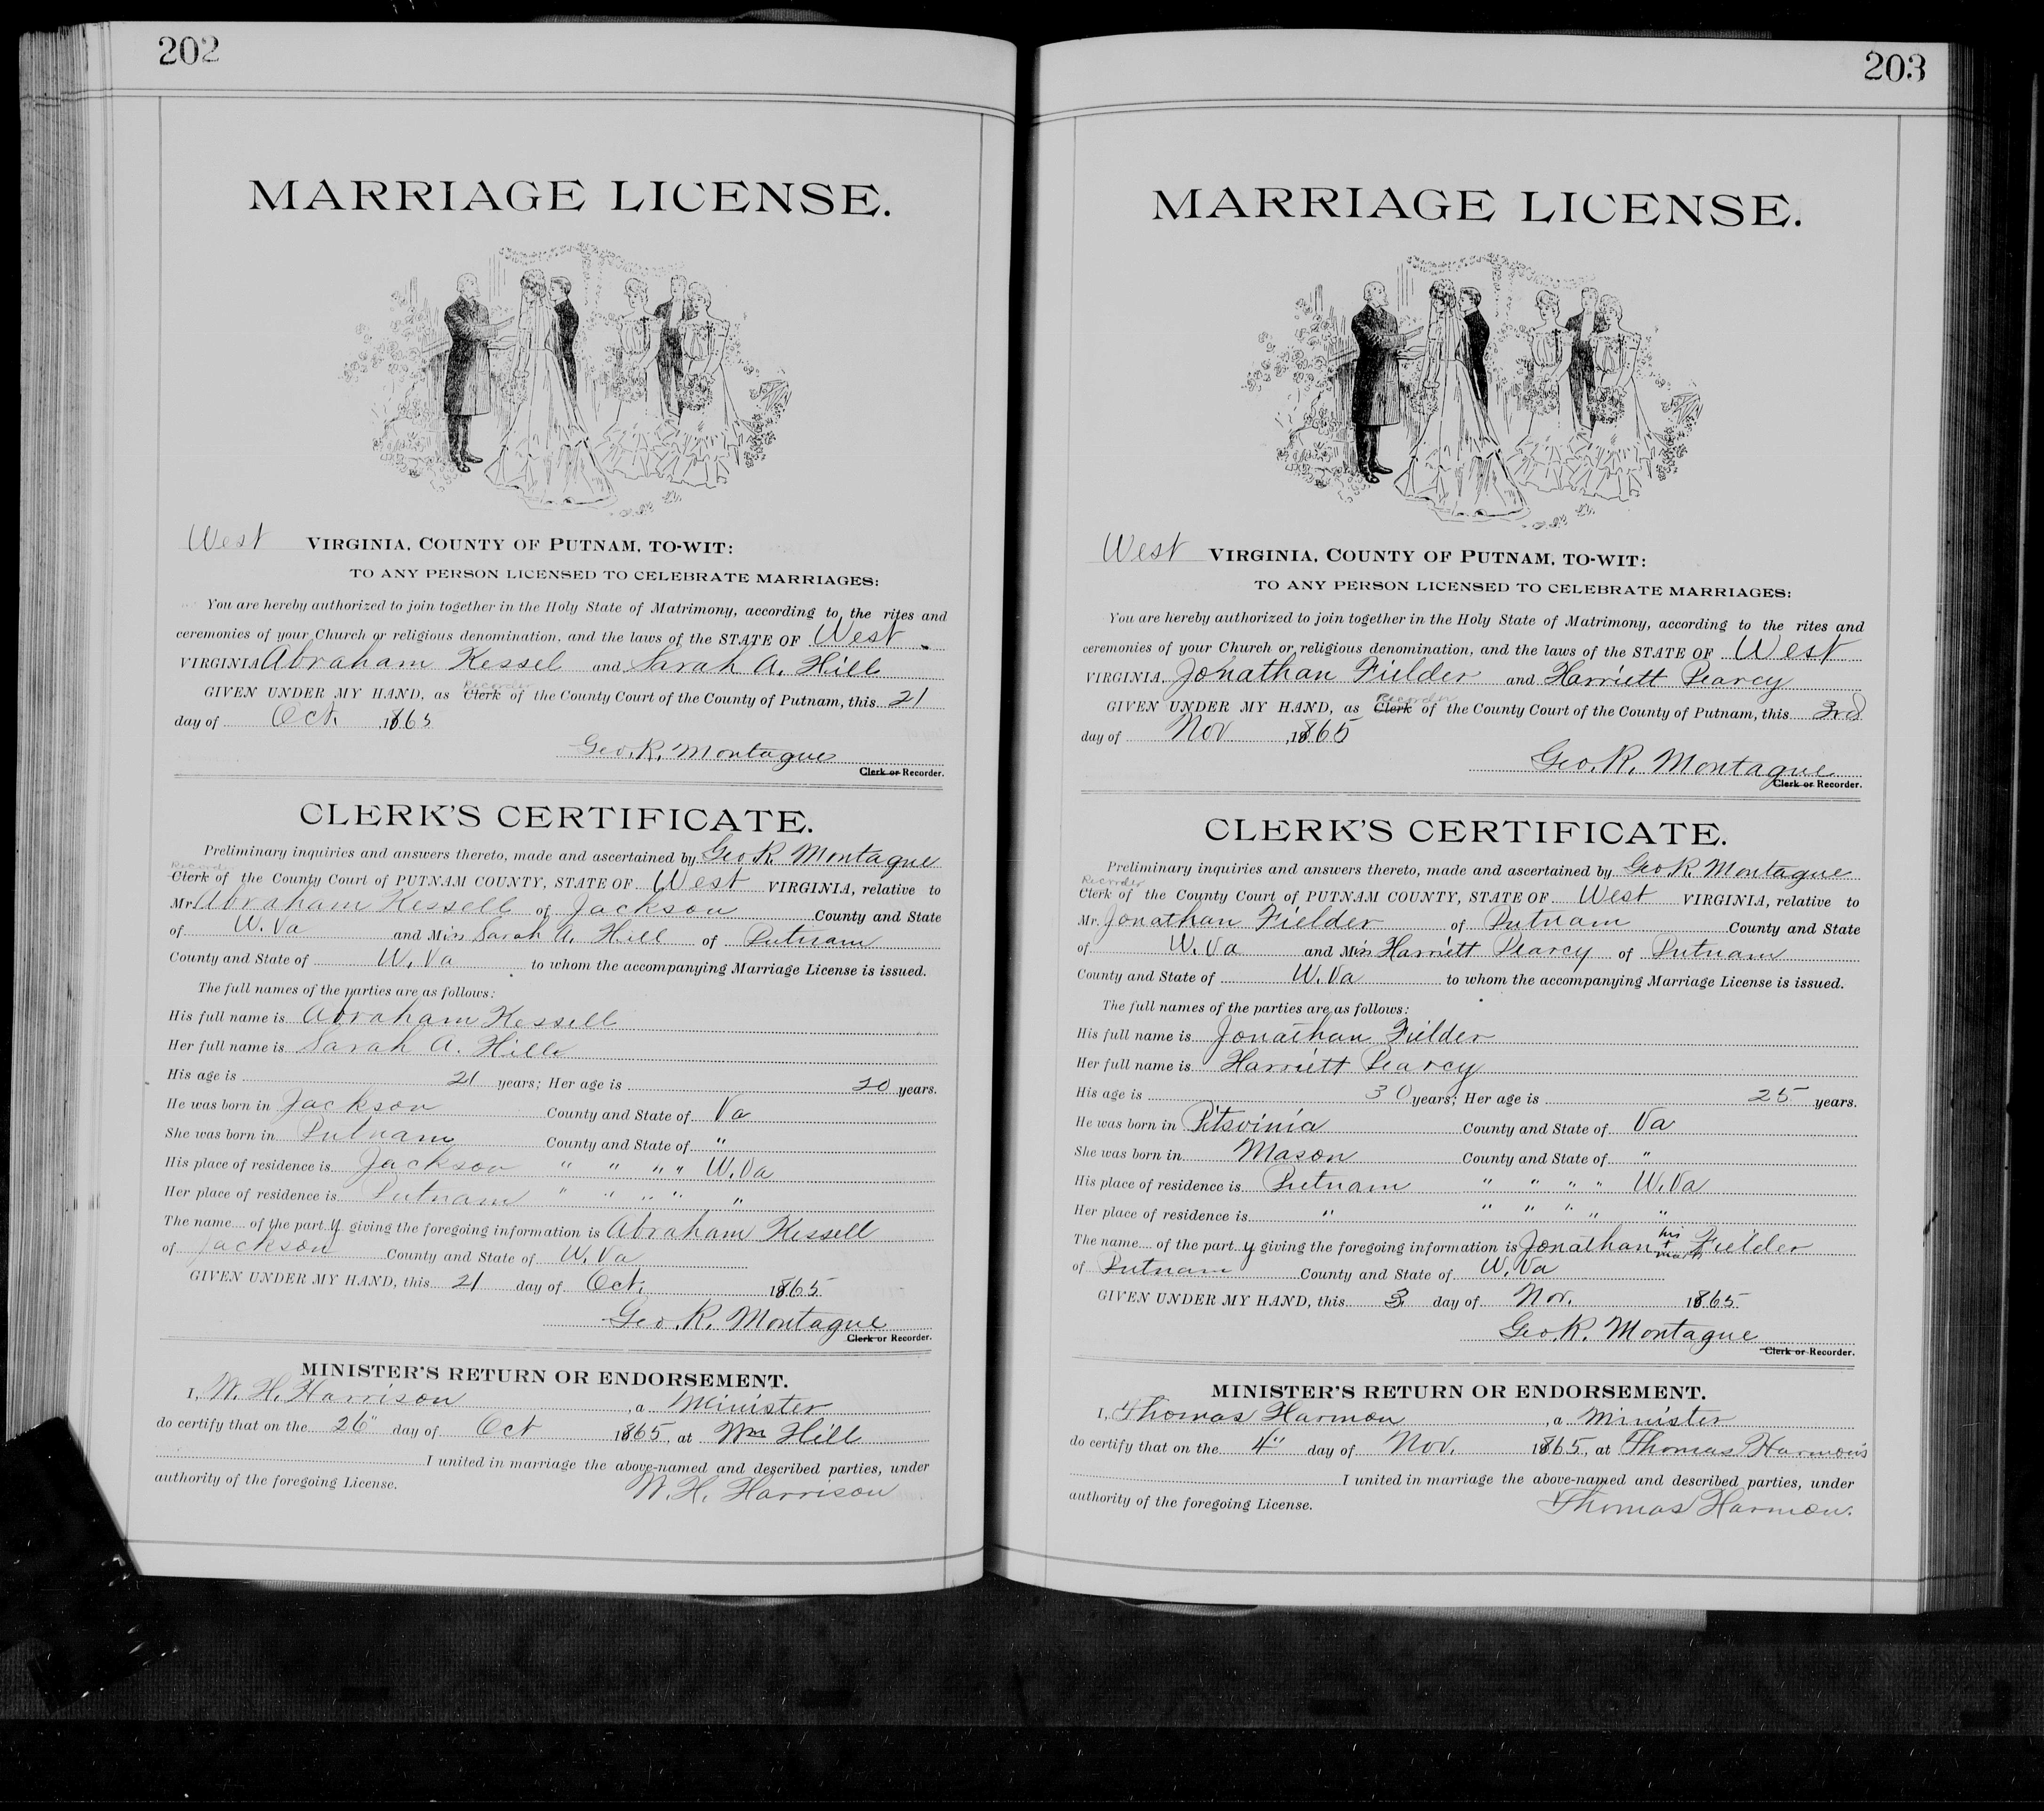 202
MARRIAGE LICENSE.
West VIRGINIA, COUNTY OF PUTNAM, TO-WIT:
TO ANY PERSON LICENSED TO CELEBRATE MARRIAGES:
You are hereby authorized to join together in the Holy State of Matrimony, according to the rites and
ceremonies of your Church or religious denomination, and the laws of the STATE OF West
VIRGINIA Abraham Kessel and Sarah A. Hill
Recorder
GIVEN UNDER MY HAND, as Clerk of the County Court of the County of Putnam, this 21
day of Oct. 1865
Geo. R. Montague
Clerk or Recorder.
CLERK'S CERTIFICATE.
Preliminary inquiries and answers thereto, made and ascertained by Geo R. Montague
Recorder
Clerk of the County Court of PUTNAM COUNTY, STATE OF West VIRGINIA, relative to
Mr Abraham Kessell of Jackson County and State
of W. Va and Miss Sarah A. Hill of Putnam
County and State of W. Va to whom the accompanying Marriage License is issued.
The full names of the parties are as follows:
His full name is Abraham Kessell
Her full name is Sarah A. Hill
His age is 21 years; Her age is 20 years.
He was born in Jackson County and State of Va
She was born in Putnam County and State of "
His place of residence is Jackson " " " " W. Va
Her place of residence is Putnam " " " " "
The name of the part y giving the foregoing information is Abraham Kessell
of Jackson County and State of W. Va
GIVEN UNDER MY HAND, this 21 day of Oct. 1865
Geo. R. Montague
Clerk or Recorder.
MINISTER'S RETURN OR ENDORSEMENT.
I, W. H. Harrison, a Minister
do certify that on the 26" day of Oct 1865, at Wm Hill
I united in marriage the above-named and described parties, under
authority of the foregoing License. W. H. Harrison
203
MARRIAGE LICENSE.
West VIRGINIA, COUNTY OF PUTNAM, TO-WIT:
TO ANY PERSON LICENSED TO CELEBRATE MARRIAGES:
You are hereby authorized to join together in the Holy State of Matrimony, according to the rites and
ceremonies of your Church or religious denomination, and the laws of the STATE OF West
VIRGINIA, Jonathan Fielder and Harriett Pearcy
Recorder
GIVEN UNDER MY HAND, as Clerk of the County Court of the County of Putnam, this 3rd
day of Nov, 1865
Geo. R. Montague
Clerk or Recorder.
CLERK'S CERTIFICATE.
Preliminary inquiries and answers thereto, made and ascertained by Geo R. Montague
Recorder
Clerk of the County Court of PUTNAM COUNTY, STATE OF West VIRGINIA, relative to
Mr. Jonathan Fielder of Putnam County and State
of W. Va and Miss Harriett Pearcy of Putnam
County and State of W. Va to whom the accompanying Marriage License is issued.
The full names of the parties are as follows:
His full name is Jonathan Fielder
Her full name is Harriett Pearcy
His age is 30 years; Her age is 25 years.
He was born in Pitsvinia County and State of Va
She was born in Mason County and State of "
His place of residence is Putnam " " " " W. Va
Her place of residence is " " " " " "
The name of the part y giving the foregoing information is Jonathan his + mark Fielder
of Putnam County and State of W. Va
GIVEN UNDER MY HAND, this 3 day of Nov. 1865
Geo. R. Montague
Clerk or Recorder.
MINISTER'S RETURN OR ENDORSEMENT.
I, Thomas Harmon, a Minister
do certify that on the 4" day of Nov. 1865, at Thomas Harmon's
I united in marriage the above-named and described parties, under
authority of the foregoing License. Thomas Harmon.